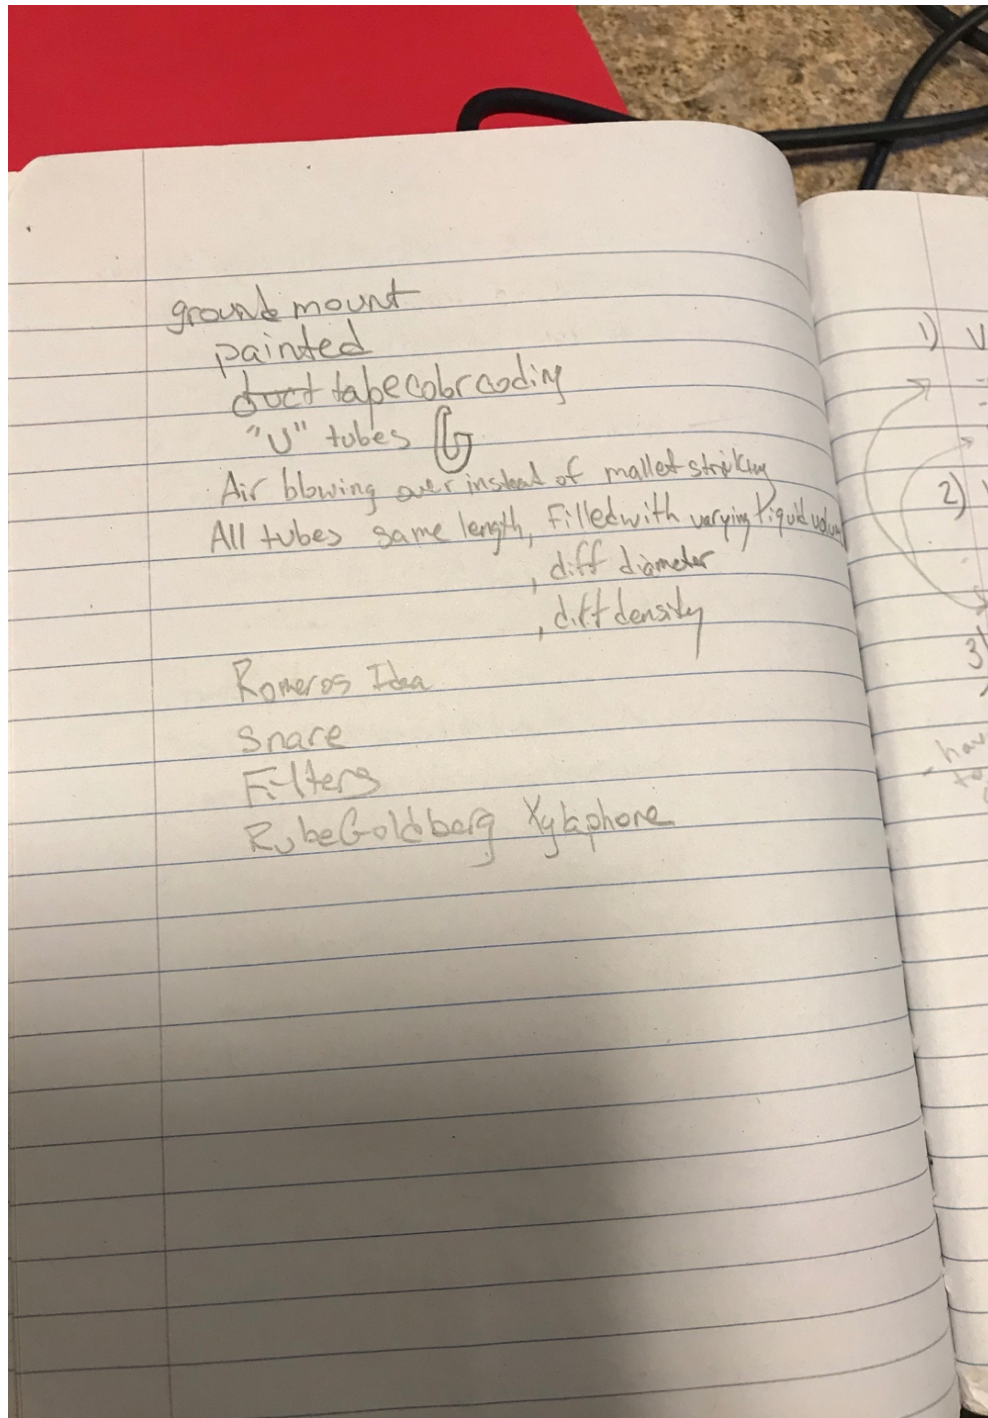 ground mount
painted
duct tape color coding
"U" tubes
Air blowing over instead of mallet striking
All tubes same length, Filled with varying liquid volum
, diff diameter
, diff density
Romeros Idea
Snare
Filters
Rube Goldberg Xylaphone
1) V
2)
3)
- hav
to